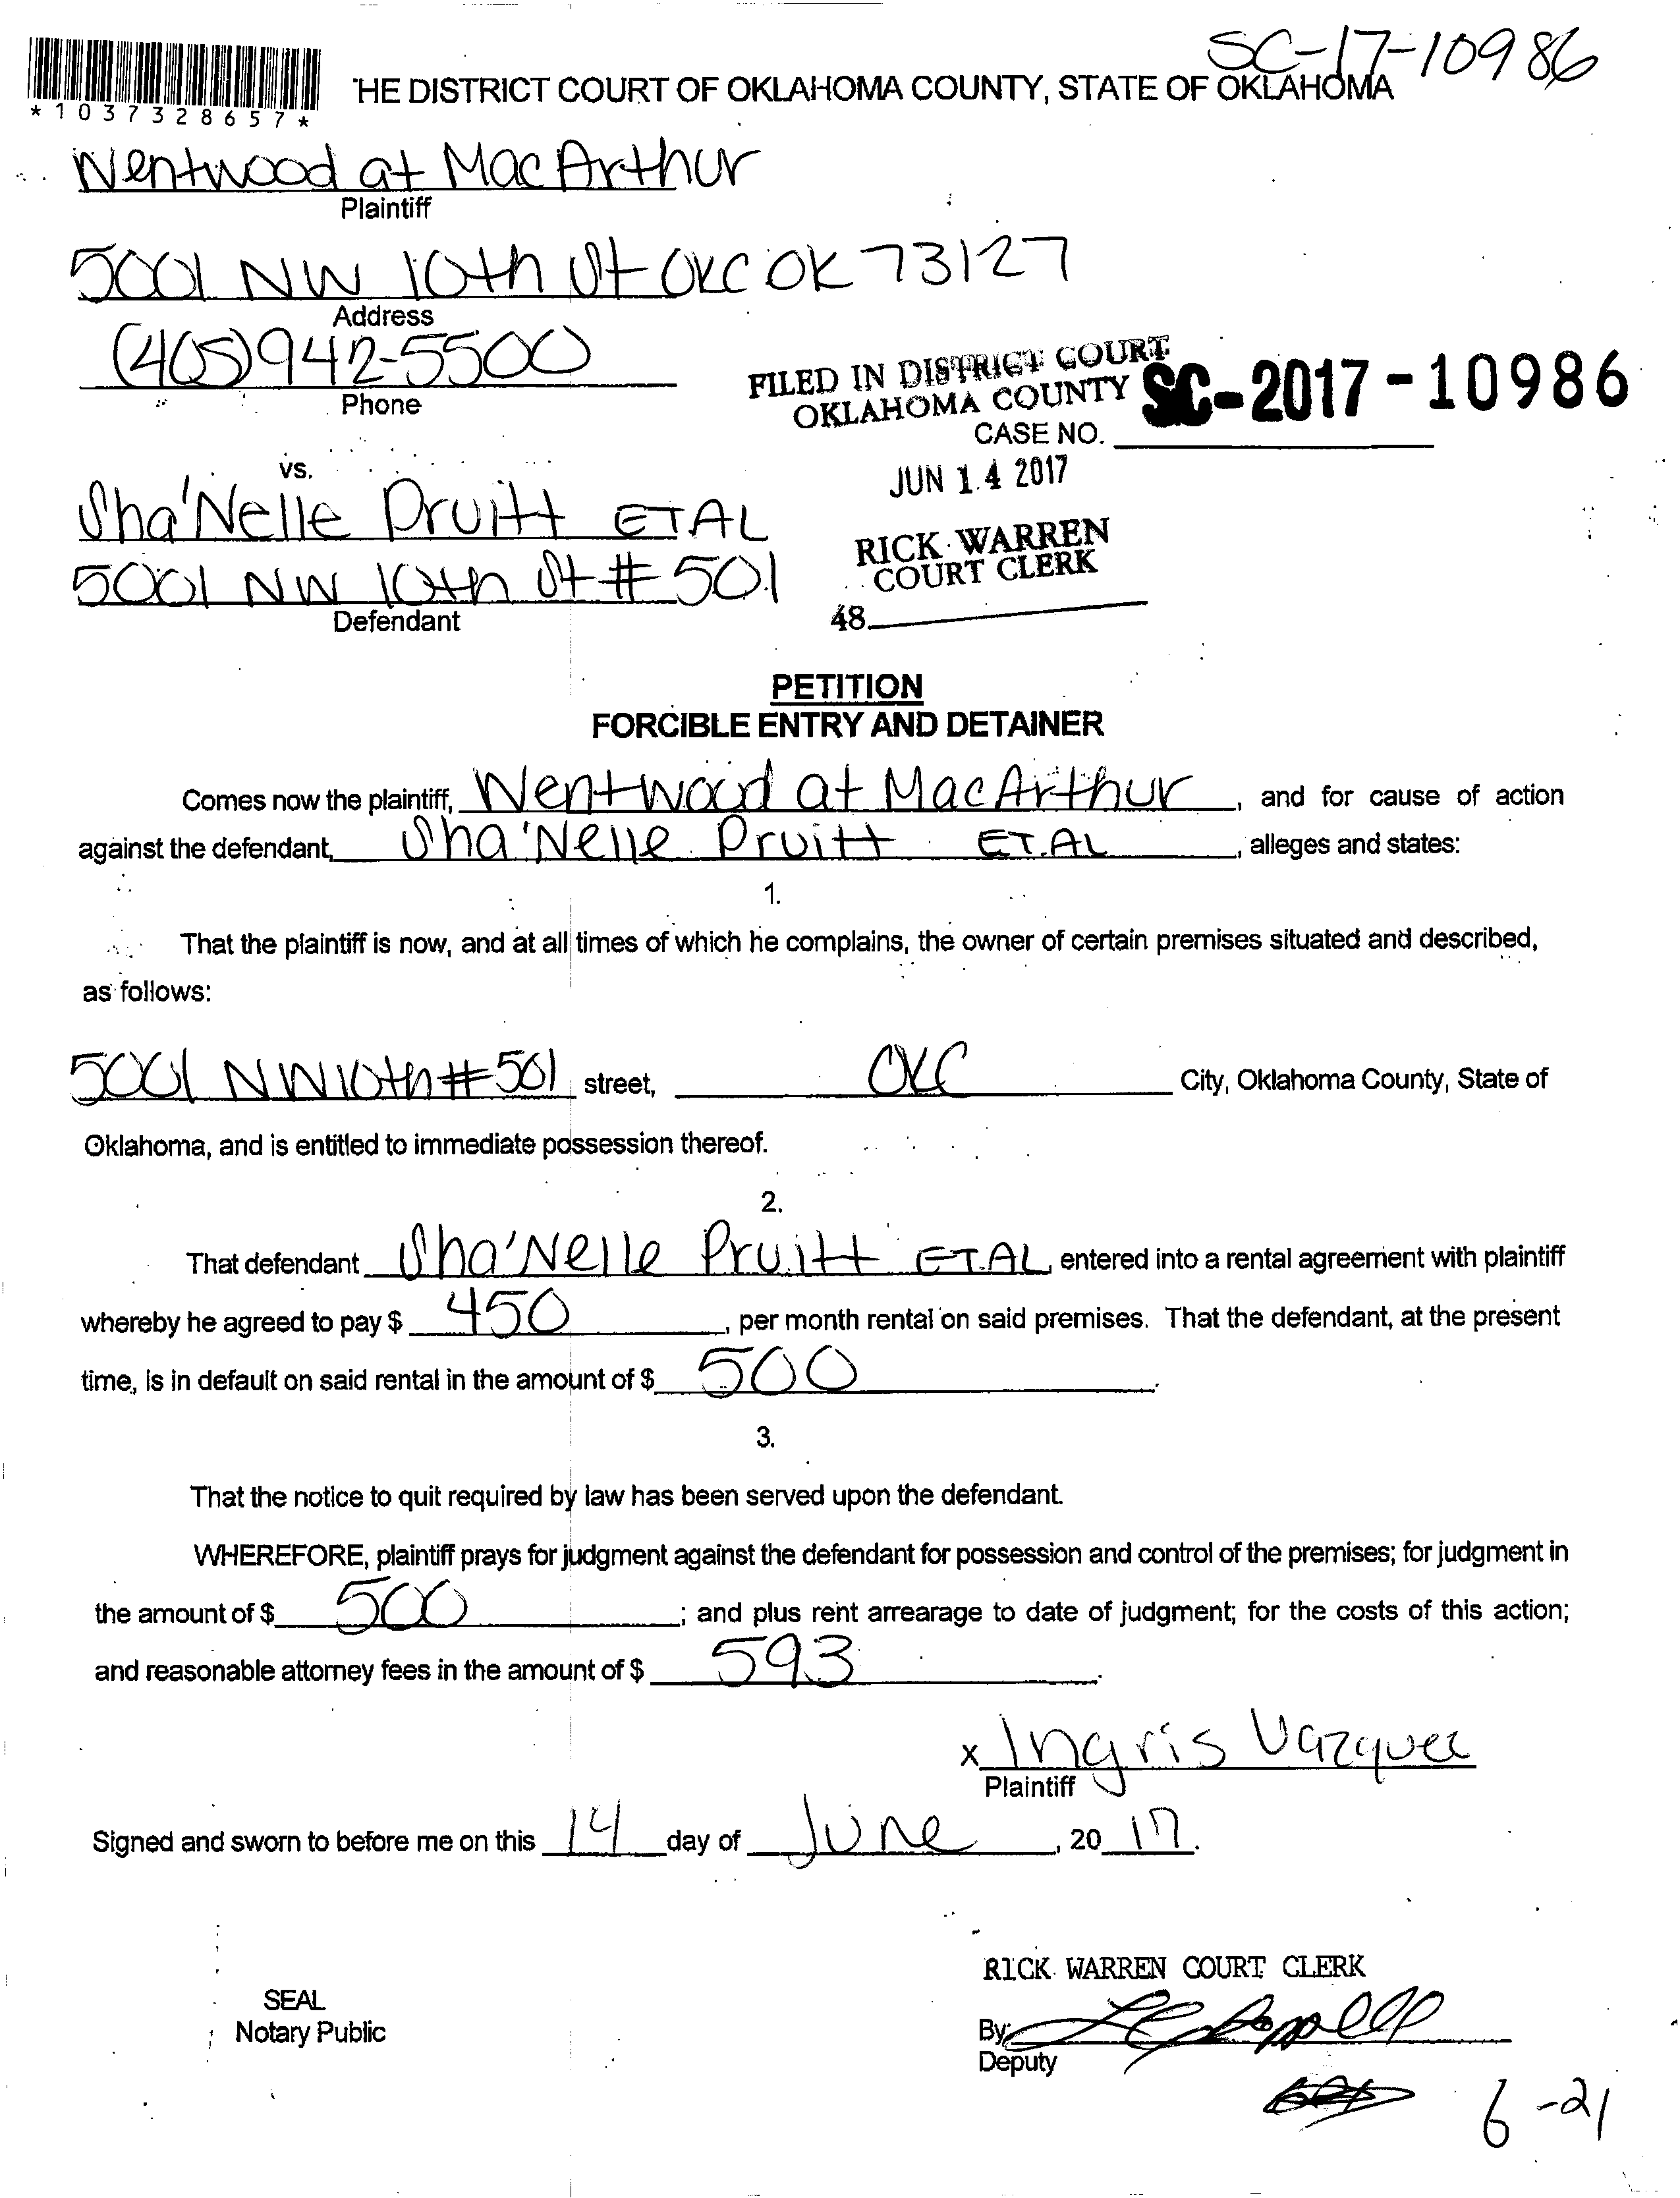 SC-17-10986
*1037328657*
HE DISTRICT COURT OF OKLAHOMA COUNTY, STATE OF OKLAHOMA
Wentwood at MacArthur
Plaintiff
5001 NW 10th St OKC OK 73127
Address
(405)942-5500
Phone
FILED IN DISTRICT COURT
OKLAHOMA COUNTY
SC-2017-10986
CASE NO.
JUN 14 2017
vs.
Sha'Nelle Pruitt ETAL
RICK WARREN
COURT CLERK
5001 NW 10th St #501
Defendant
48
PETITION
FORCIBLE ENTRY AND DETAINER
Comes now the plaintiff, Wentwood at MacArthur, and for cause of action
against the defendant, Sha'Nelle Pruitt ET.AL, alleges and states:
1.
That the plaintiff is now, and at all times of which he complains, the owner of certain premises situated and described,
as follows:
5001 NW 10th #501 street, OKC City, Oklahoma County, State of
Oklahoma, and is entitled to immediate possession thereof.
2.
That defendant Sha'Nelle Pruitt ET.AL, entered into a rental agreement with plaintiff
whereby he agreed to pay $ 450, per month rental on said premises. That the defendant, at the present
time, is in default on said rental in the amount of $ 500.
3.
That the notice to quit required by law has been served upon the defendant.
WHEREFORE, plaintiff prays for judgment against the defendant for possession and control of the premises; for judgment in
the amount of $ 500; and plus rent arrearage to date of judgment; for the costs of this action;
and reasonable attorney fees in the amount of $ 593.
x Ingris Vazquez
Plaintiff
Signed and sworn to before me on this 14 day of June, 20 17.
RICK WARREN COURT CLERK
SEAL
Notary Public
By:
Deputy
6-21